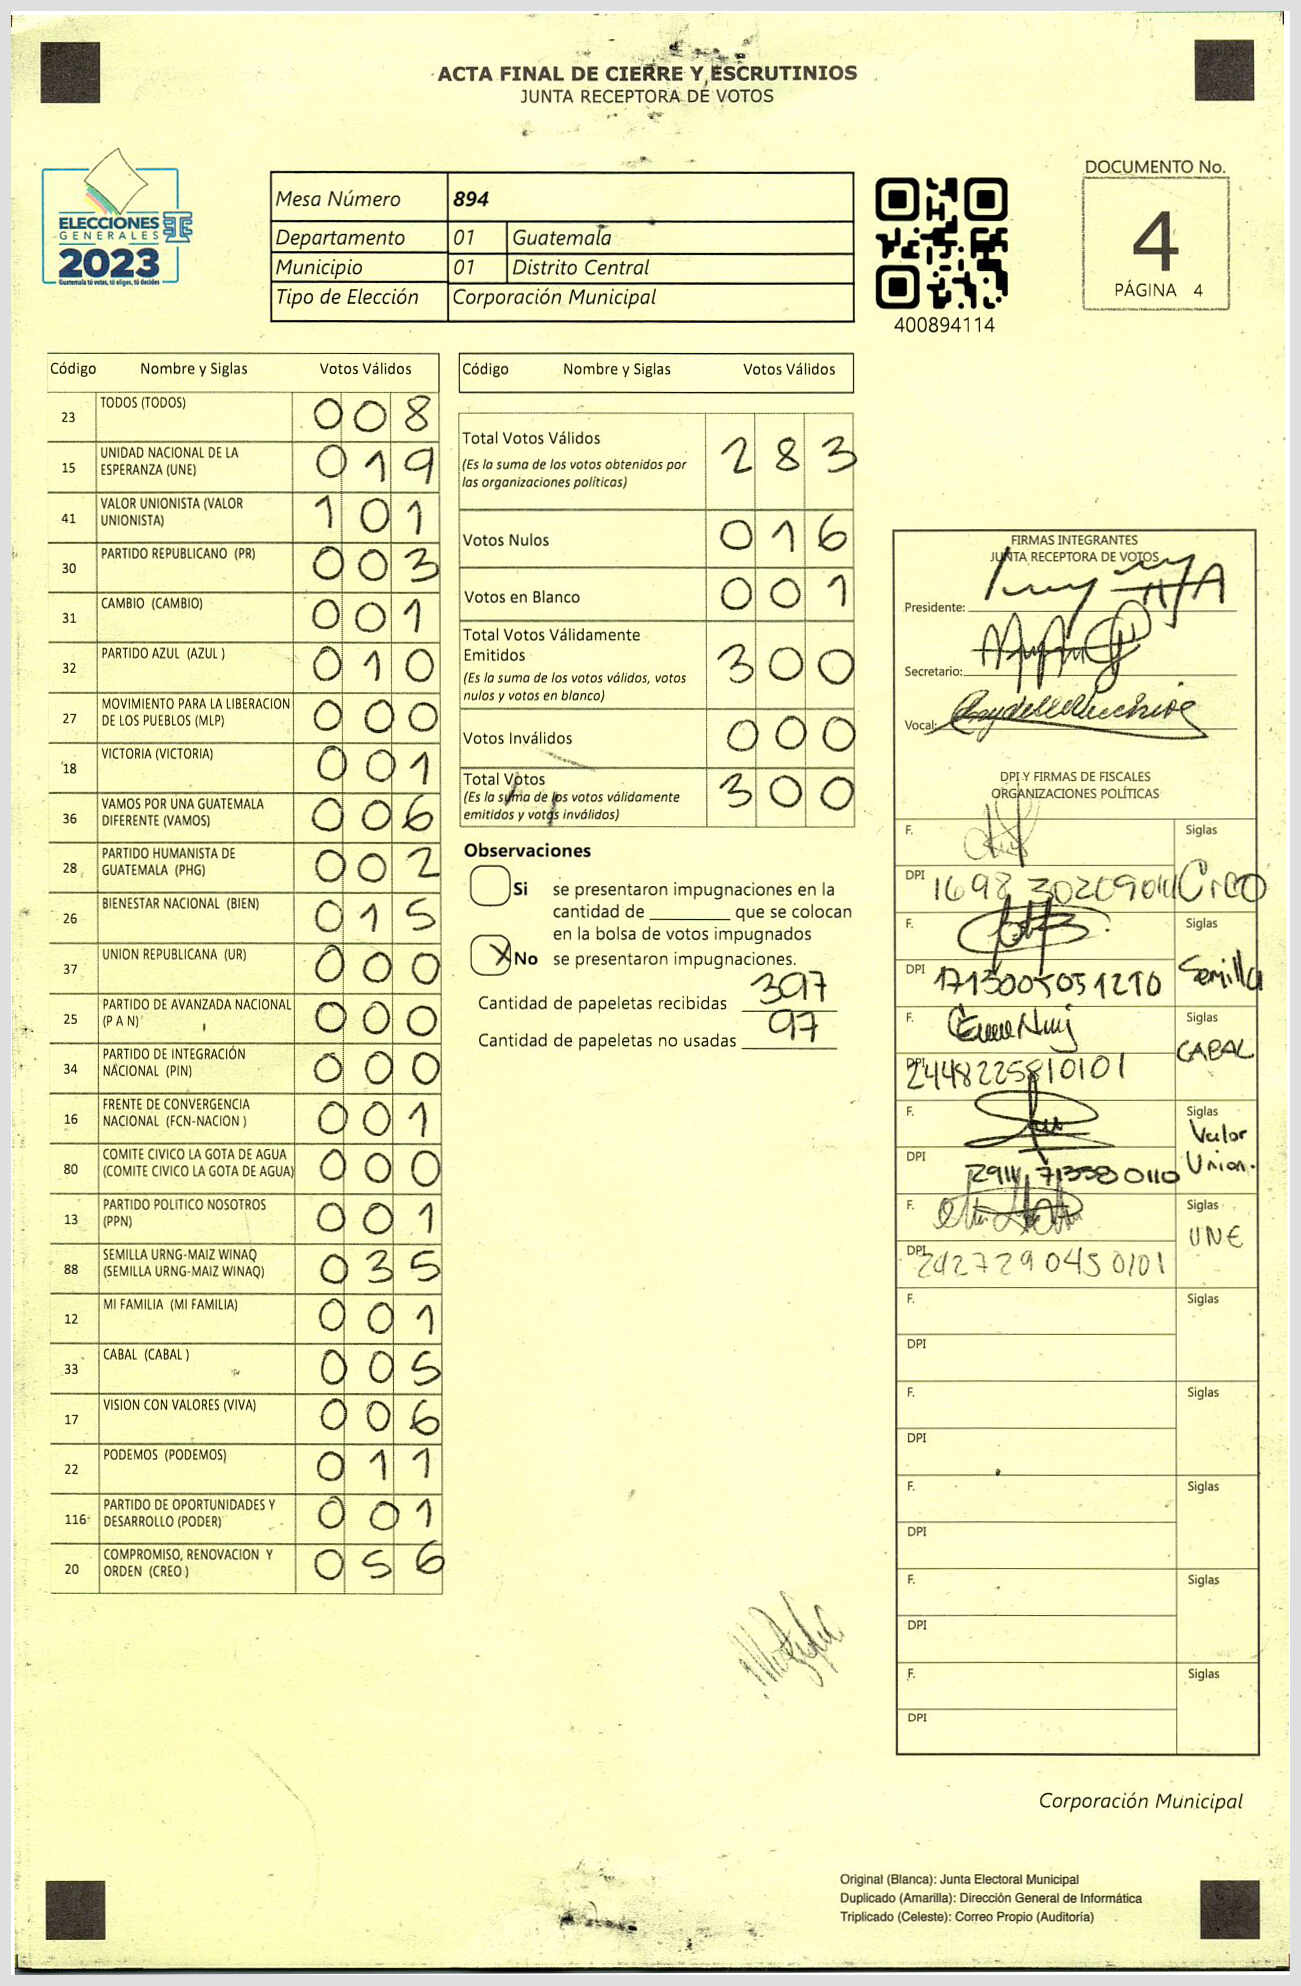 ACTA FINAL DE CIERRE Y ESCRUTINIOS
JUNTA RECEPTORA DE VOTOS
ELECCIONES
GENERALES
2023
Guatemala tú votas, tú eliges, tú decides
Mesa Número 894
Departamento 01 Guatemala
Municipio 01 Distrito Central
Tipo de Elección Corporación Municipal
400894114
DOCUMENTO No.
4
PÁGINA 4
Código Nombre y Siglas Votos Válidos
23 TODOS (TODOS) 008
15 UNIDAD NACIONAL DE LA ESPERANZA (UNE) 019
41 VALOR UNIONISTA (VALOR UNIONISTA) 101
30 PARTIDO REPUBLICANO (PR) 003
31 CAMBIO (CAMBIO) 001
32 PARTIDO AZUL (AZUL ) 010
27 MOVIMIENTO PARA LA LIBERACION DE LOS PUEBLOS (MLP) 000
18 VICTORIA (VICTORIA) 001
36 VAMOS POR UNA GUATEMALA DIFERENTE (VAMOS) 006
28 PARTIDO HUMANISTA DE GUATEMALA (PHG) 002
26 BIENESTAR NACIONAL (BIEN) 015
37 UNION REPUBLICANA (UR) 000
25 PARTIDO DE AVANZADA NACIONAL (P A N) 000
34 PARTIDO DE INTEGRACIÓN NACIONAL (PIN) 000
16 FRENTE DE CONVERGENCIA NACIONAL (FCN-NACION ) 001
80 COMITE CIVICO LA GOTA DE AGUA (COMITE CIVICO LA GOTA DE AGUA) 000
13 PARTIDO POLITICO NOSOTROS (PPN) 001
88 SEMILLA URNG-MAIZ WINAQ (SEMILLA URNG-MAIZ WINAQ) 035
12 MI FAMILIA (MI FAMILIA) 001
33 CABAL (CABAL ) 005
17 VISION CON VALORES (VIVA) 006
22 PODEMOS (PODEMOS) 011
116 PARTIDO DE OPORTUNIDADES Y DESARROLLO (PODER) 001
20 COMPROMISO, RENOVACION Y ORDEN (CREO ) 056
Código Nombre y Siglas Votos Válidos
Total Votos Válidos 283
(Es la suma de los votos obtenidos por
las organizaciones políticas)
Votos Nulos 016
Votos en Blanco 001
Total Votos Válidamente
Emitidos 300
(Es la suma de los votos válidos, votos
nulos y votos en blanco)
Votos Inválidos 000
Total Votos 300
(Es la suma de los votos válidamente
emitidos y votos inválidos)
Observaciones
Si se presentaron impugnaciones en la
cantidad de ________ que se colocan
en la bolsa de votos impugnados
X No se presentaron impugnaciones.
Cantidad de papeletas recibidas 397
Cantidad de papeletas no usadas 97
FIRMAS INTEGRANTES
JUNTA RECEPTORA DE VOTOS
Presidente:
Secretario:
Vocal:
DPI Y FIRMAS DE FISCALES
ORGANIZACIONES POLÍTICAS
F. Siglas
DPI CrEO
F. Siglas
DPI Semilla
F. Siglas
DPI 2448225810101 CABAL
F. Siglas
Valor
DPI Union.
F. Siglas
UNE
DPI 2427290450101
F. Siglas
DPI
F. Siglas
DPI
F. Siglas
DPI
F. Siglas
DPI
F. Siglas
DPI
Corporación Municipal
Original (Blanca): Junta Electoral Municipal
Duplicado (Amarilla): Dirección General de Informática
Triplicado (Celeste): Correo Propio (Auditoría)